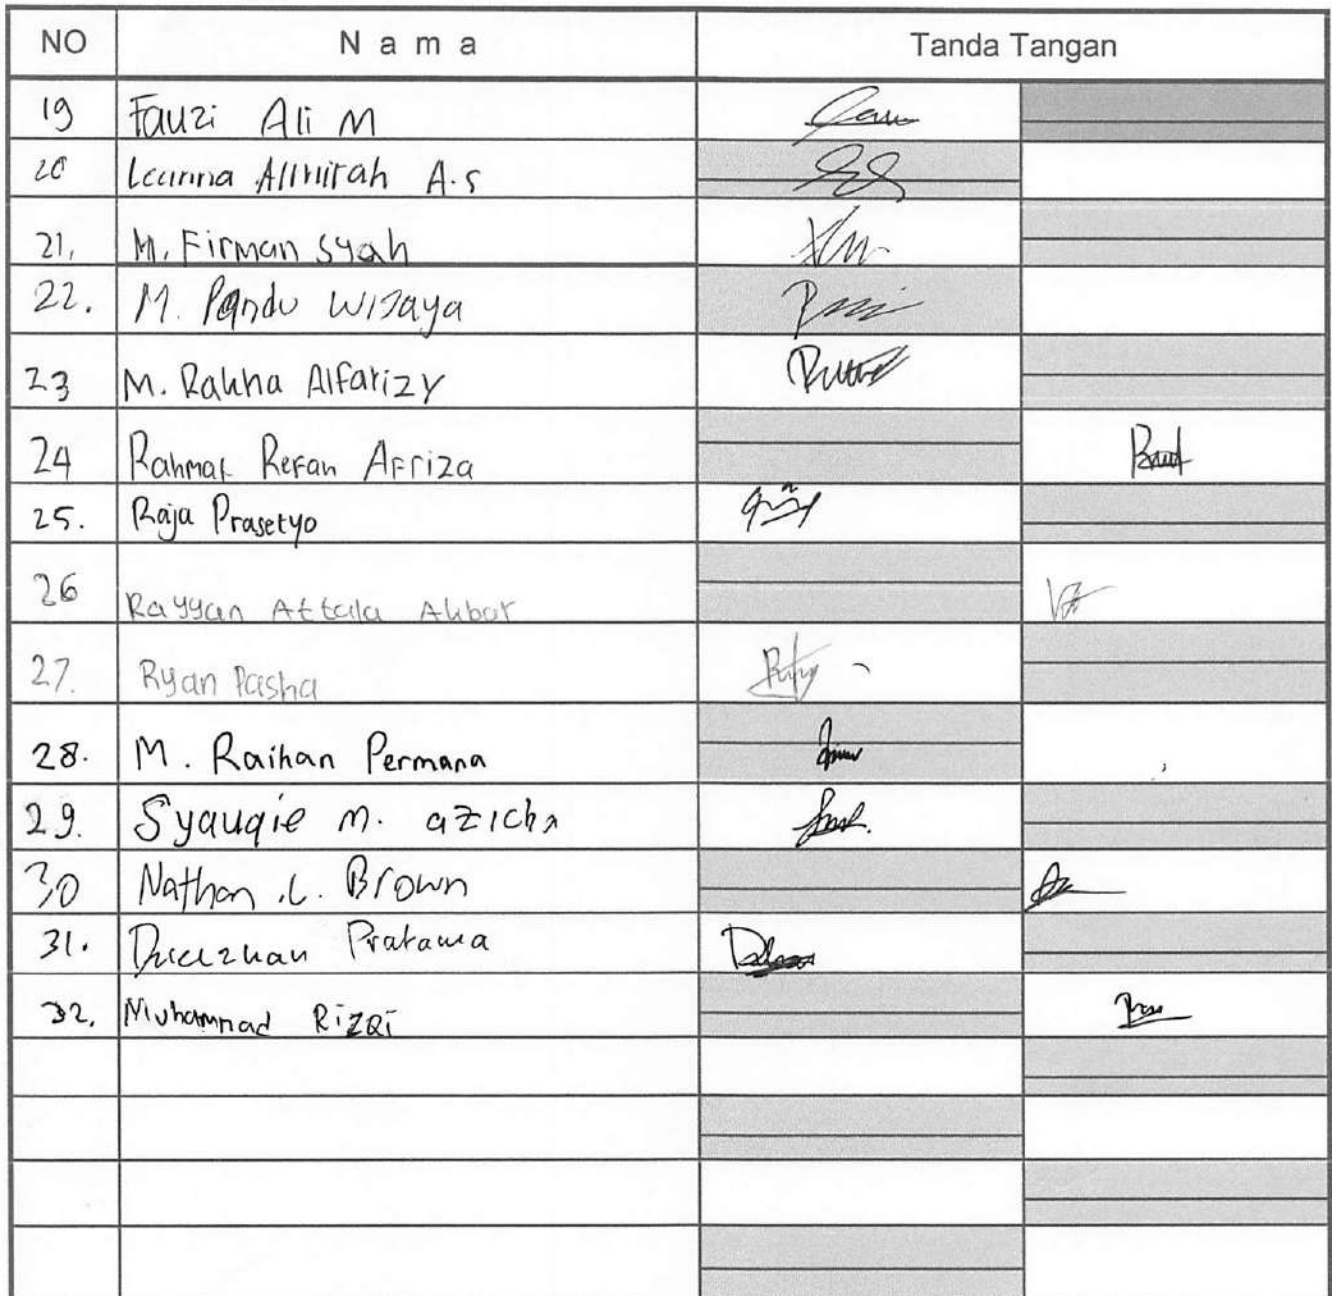 NO N a m a Tanda Tangan
19 Fauzi Ali M
20 A.S
21. M. Firman syah
22. M. Pandu wijaya
23 M. Rakha Alfarizy
24 Rahmat Refan Afriza
25. Raja Prasetyo
26 Rayyan Attala Akbar
27. Ryan Pasha
28. M. Raihan Permana
29. Syauqie M. azicha
30 Nathan .L. Brown
31. Pratama
32. Muhammad RizQi